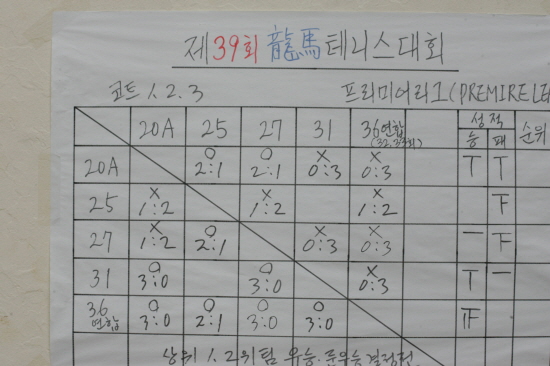 제39회 龍馬테니스대회
코트 1.2.3 프리미어리그(PREMIRE LE
20A 25 27 31 36연합 성적 순위
승 패
20A ○ 2:1 ○ 2:1 × 0:3 × 0:3 T T
25 × 1:2 × 1:2 × 1:2 F
27 × 1:2 ○ 2:1 × 0:3 × 0:3 一 F
31 ○ 3:0 ○ 3:0 × 0:3 T 一
36연합 ○ 3:0 ○ 2:1 ○ 3:0 ○ 3:0 F
상위 1.2위팀 우승.준우승결정전